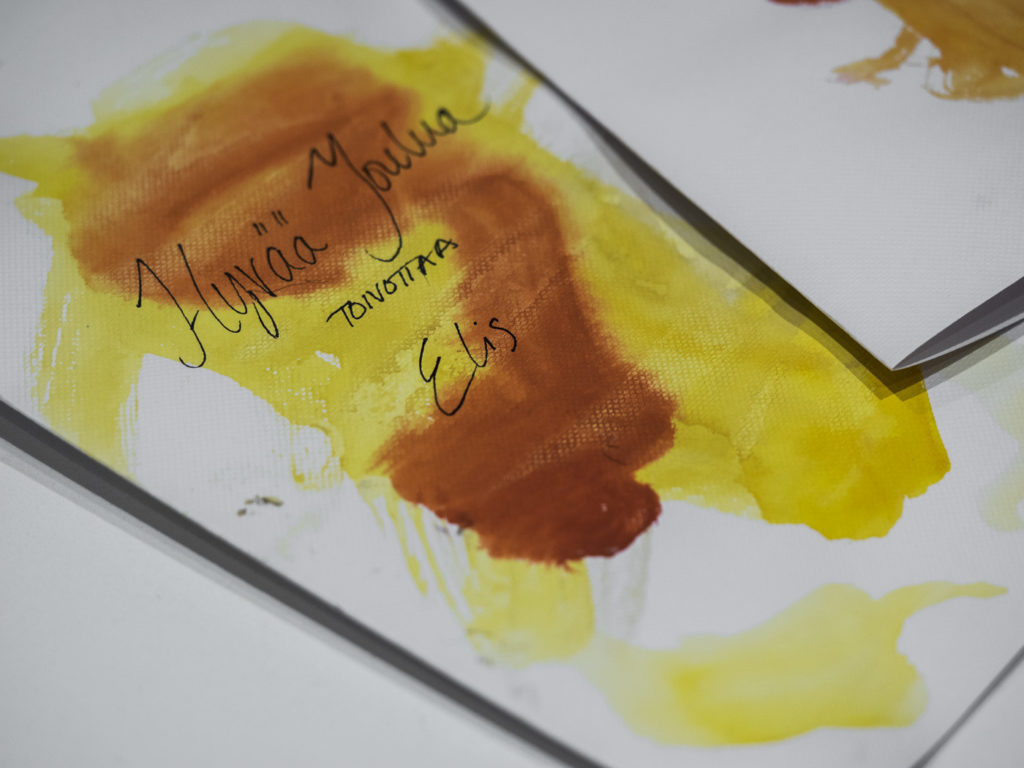 Hyvää Joulua
TOIVOTTAA
Elis